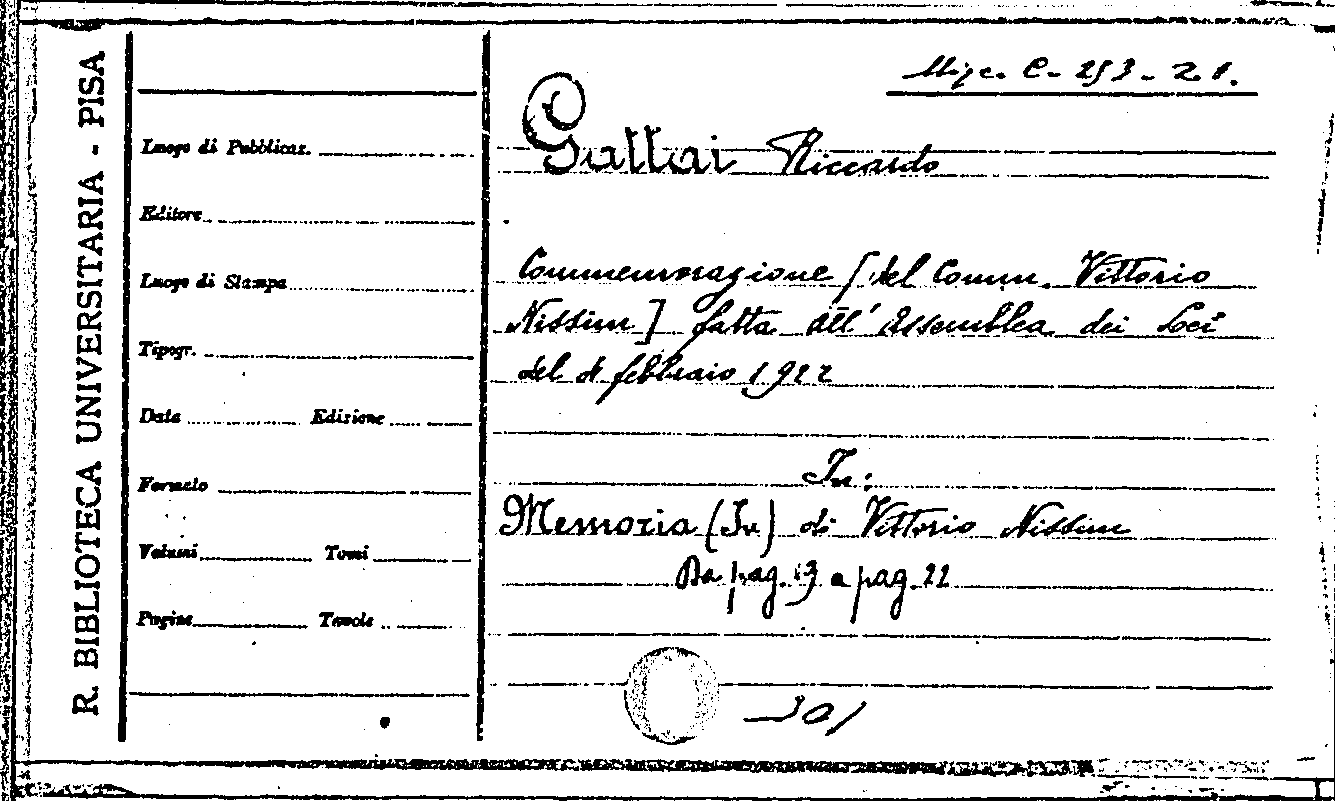 R. BIBLIOTECA UNIVERSITARIA - PISA
Luogo di Pubblicaz.
Editore
Luogo di Stampa
Tipogr.
Data Edizione
Formato
Volumi Tomi
Pagine Tavole
Misc. C. 253. 21.
Gattai Riccardo
Commemorazione [del Comm. Vittorio
Nissim] fatta all'Assemblea dei Soci
del febbraio 1922
In:
Memoria (In) di Vittorio Nissim
Da pag. 19 a pag. 22